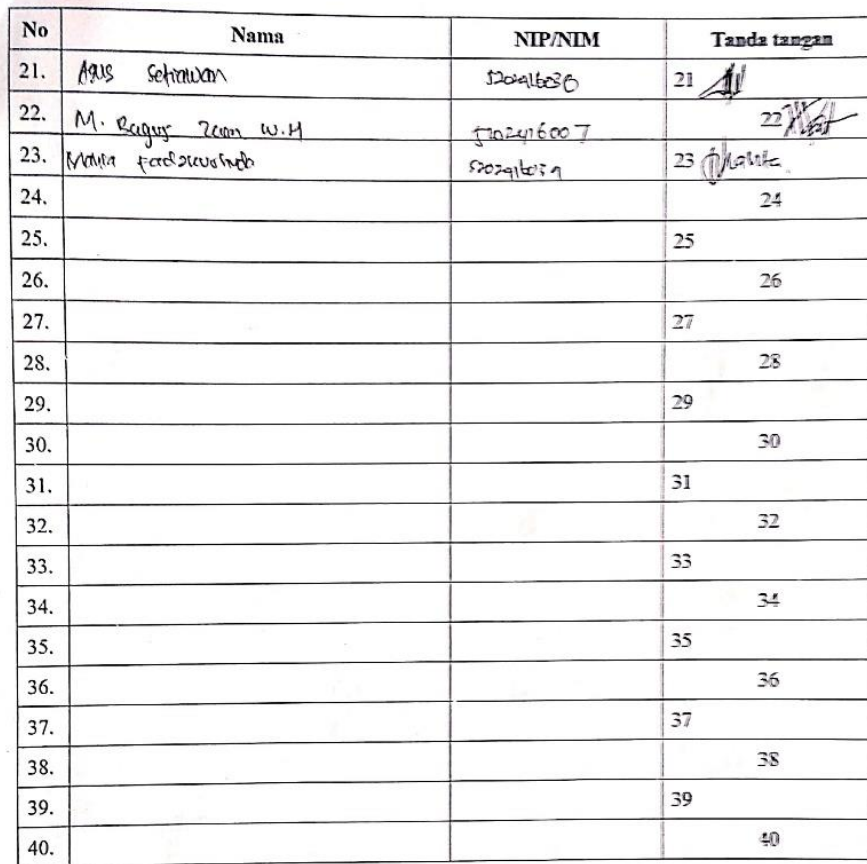 No Nama NIP/NIM Tanda tangan
21. Agus Setiawan 5202416036 21
22. M. Bagus W.H 5202416007 22
23. 23
24. 24
25. 25
26. 26
27. 27
28. 28
29. 29
30. 30
31. 31
32. 32
33. 33
34. 34
35. 35
36. 36
37. 37
38. 38
39. 39
40. 40